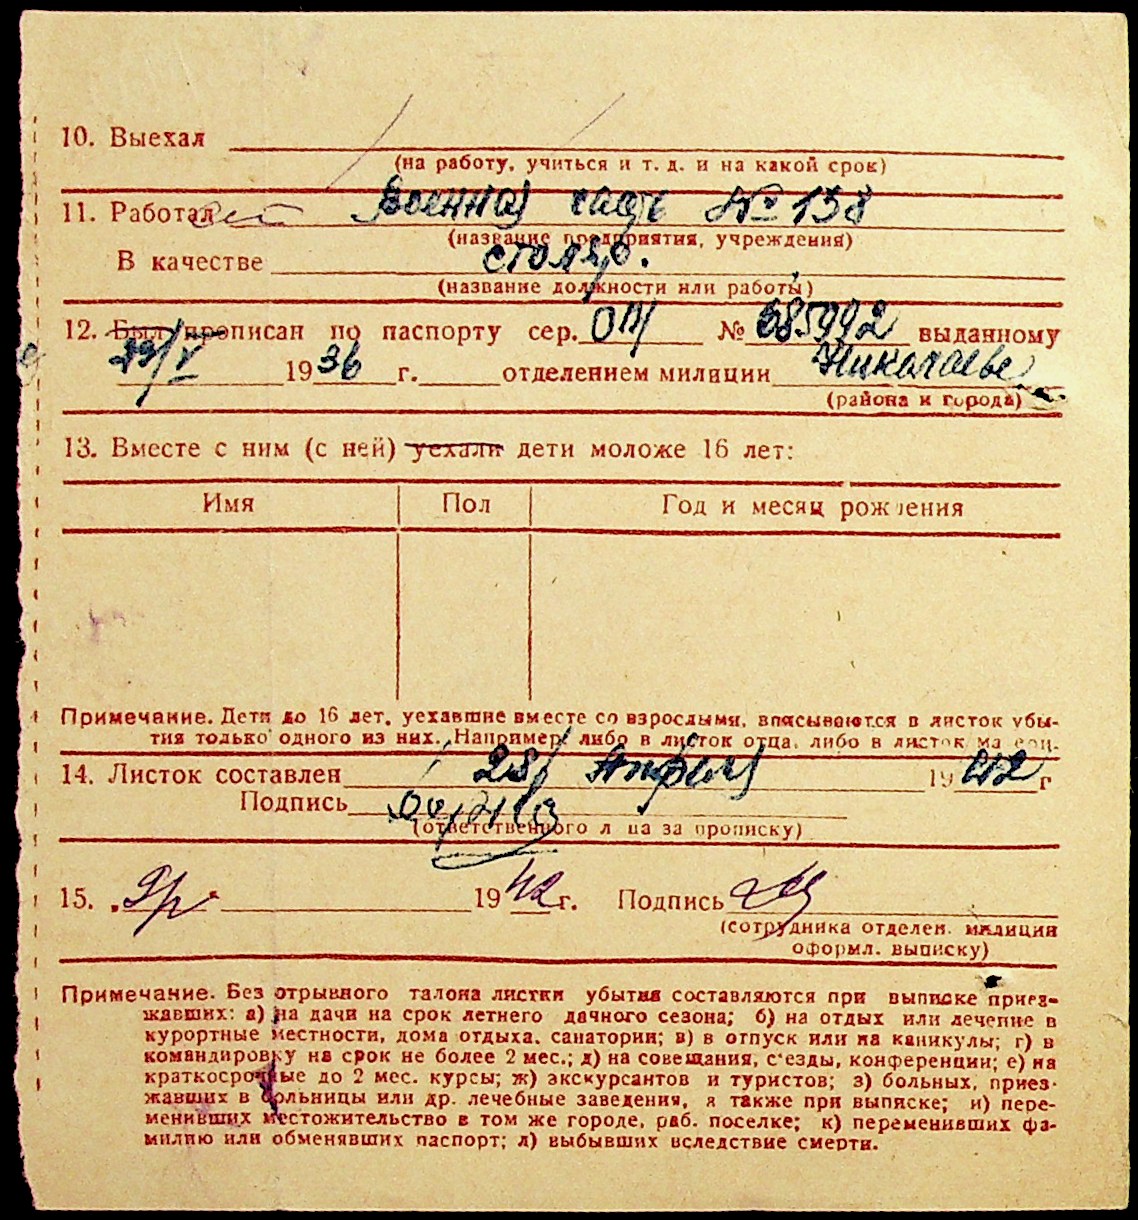 10. Выехал
(на работу, учиться и т. д. и на какой срок)
11. Работал Военная часть № 138
(название предприятия, учреждения)
В качестве столяр.
(название должности или работы)
12. Был прописан по паспорту сер. № 685992 выданному
29/V 1936 г. отделением милиции Николаеве
(района и города)
13. Вместе с ним (с ней) уехали дети моложе 16 лет:
Имя Пол Год и месяц рождения
Примечание. Дети до 16 лет, уехавшие вместе со взрослыми, вписываются в листок убы-
тия только одного из них. Например либо в листок отца, либо в листок
14. Листок составлен 28/ Апреля 1942 г
Подпись
(ответственного лица за прописку)
15. 1942 г. Подпись
(сотрудника отделен. милиции
оформл. выписку)
Примечание. Без отрывного талона листки убытия составляются при выписке приез-
жавших: а) на дачи на срок летнего дачного сезона; б) на отдых или лечение в
курортные местности, дома отдыха, санатории; в) в отпуск или на каникулы; г) в
командировку на срок не более 2 мес.; д) на совещания, с'езды, конференции; е) на
краткосрочные до 2 мес. курсы; ж) экскурсантов и туристов; з) больных, приез-
жавших в больницы или др. лечебные заведения, а также при выписке; и) пере-
менивших местожительство в том же городе, раб. поселке; к) переменивших фа-
милию или обменявших паспорт; л) выбывших вследствие смерти.